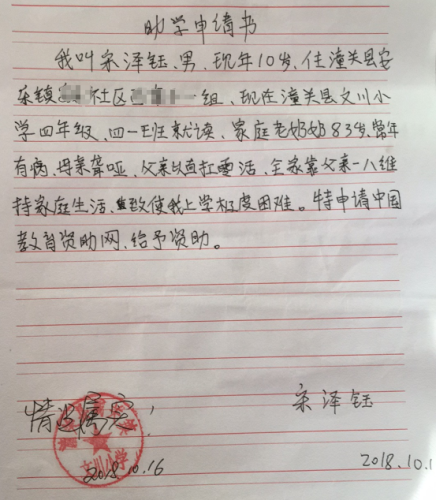 助学申请书
我叫宋泽钰、男、现年10岁、住潼关县安
乐镇 社区 一组、现在潼关县文川小
学四年级、四一班就读、家庭老奶奶83岁、常年
有病、母亲聋哑、父亲以直扛零活、全家靠父亲一人维
持家庭生活、致使我上学极度困难。特申请中国
教育资助网、给予资助。
宋泽钰
情况属实！
文川小学
2018.10.16
2018.10.1